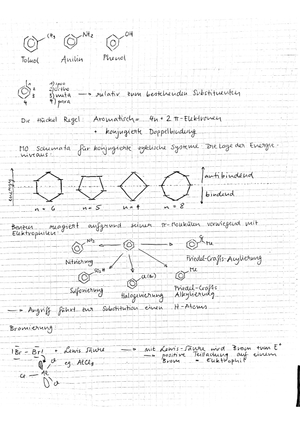 CH₃ NH₂ OH
Toluol Anilin Phenol
1) ipso
2) ortho
3) meta → relativ zum bestehenden Substituenten
4) para
Die Hückel Regel: Aromatisch = 4n + 2 π-Elektronen
+ konjugierte Doppelbindung
MO Schemata für konjugierte cyklische Systeme. Die Lage der Energie-
niveaus:
energy
antibindend
bindend
n = 6 n = 5 n = 4 n = 8
Benzen reagiert aufgrund seiner π-Wolken vorwiegend mit
Elektrophilen:
NO₂
Nitrierung Friedel-Crafts-Acylierung
Sulfonierung Halogenierung Friedel-Crafts
Alkylierung
→ Angriff führt zur Substitution eines H-Atoms
Bromierung
Br – Br + Lewis Säure → mit Lewis-Säure wird Brom zum E⁺
eg. AlCl₃ → positive Teilladung auf einem
Brom = Elektrophil
Cl Al Cl
Cl